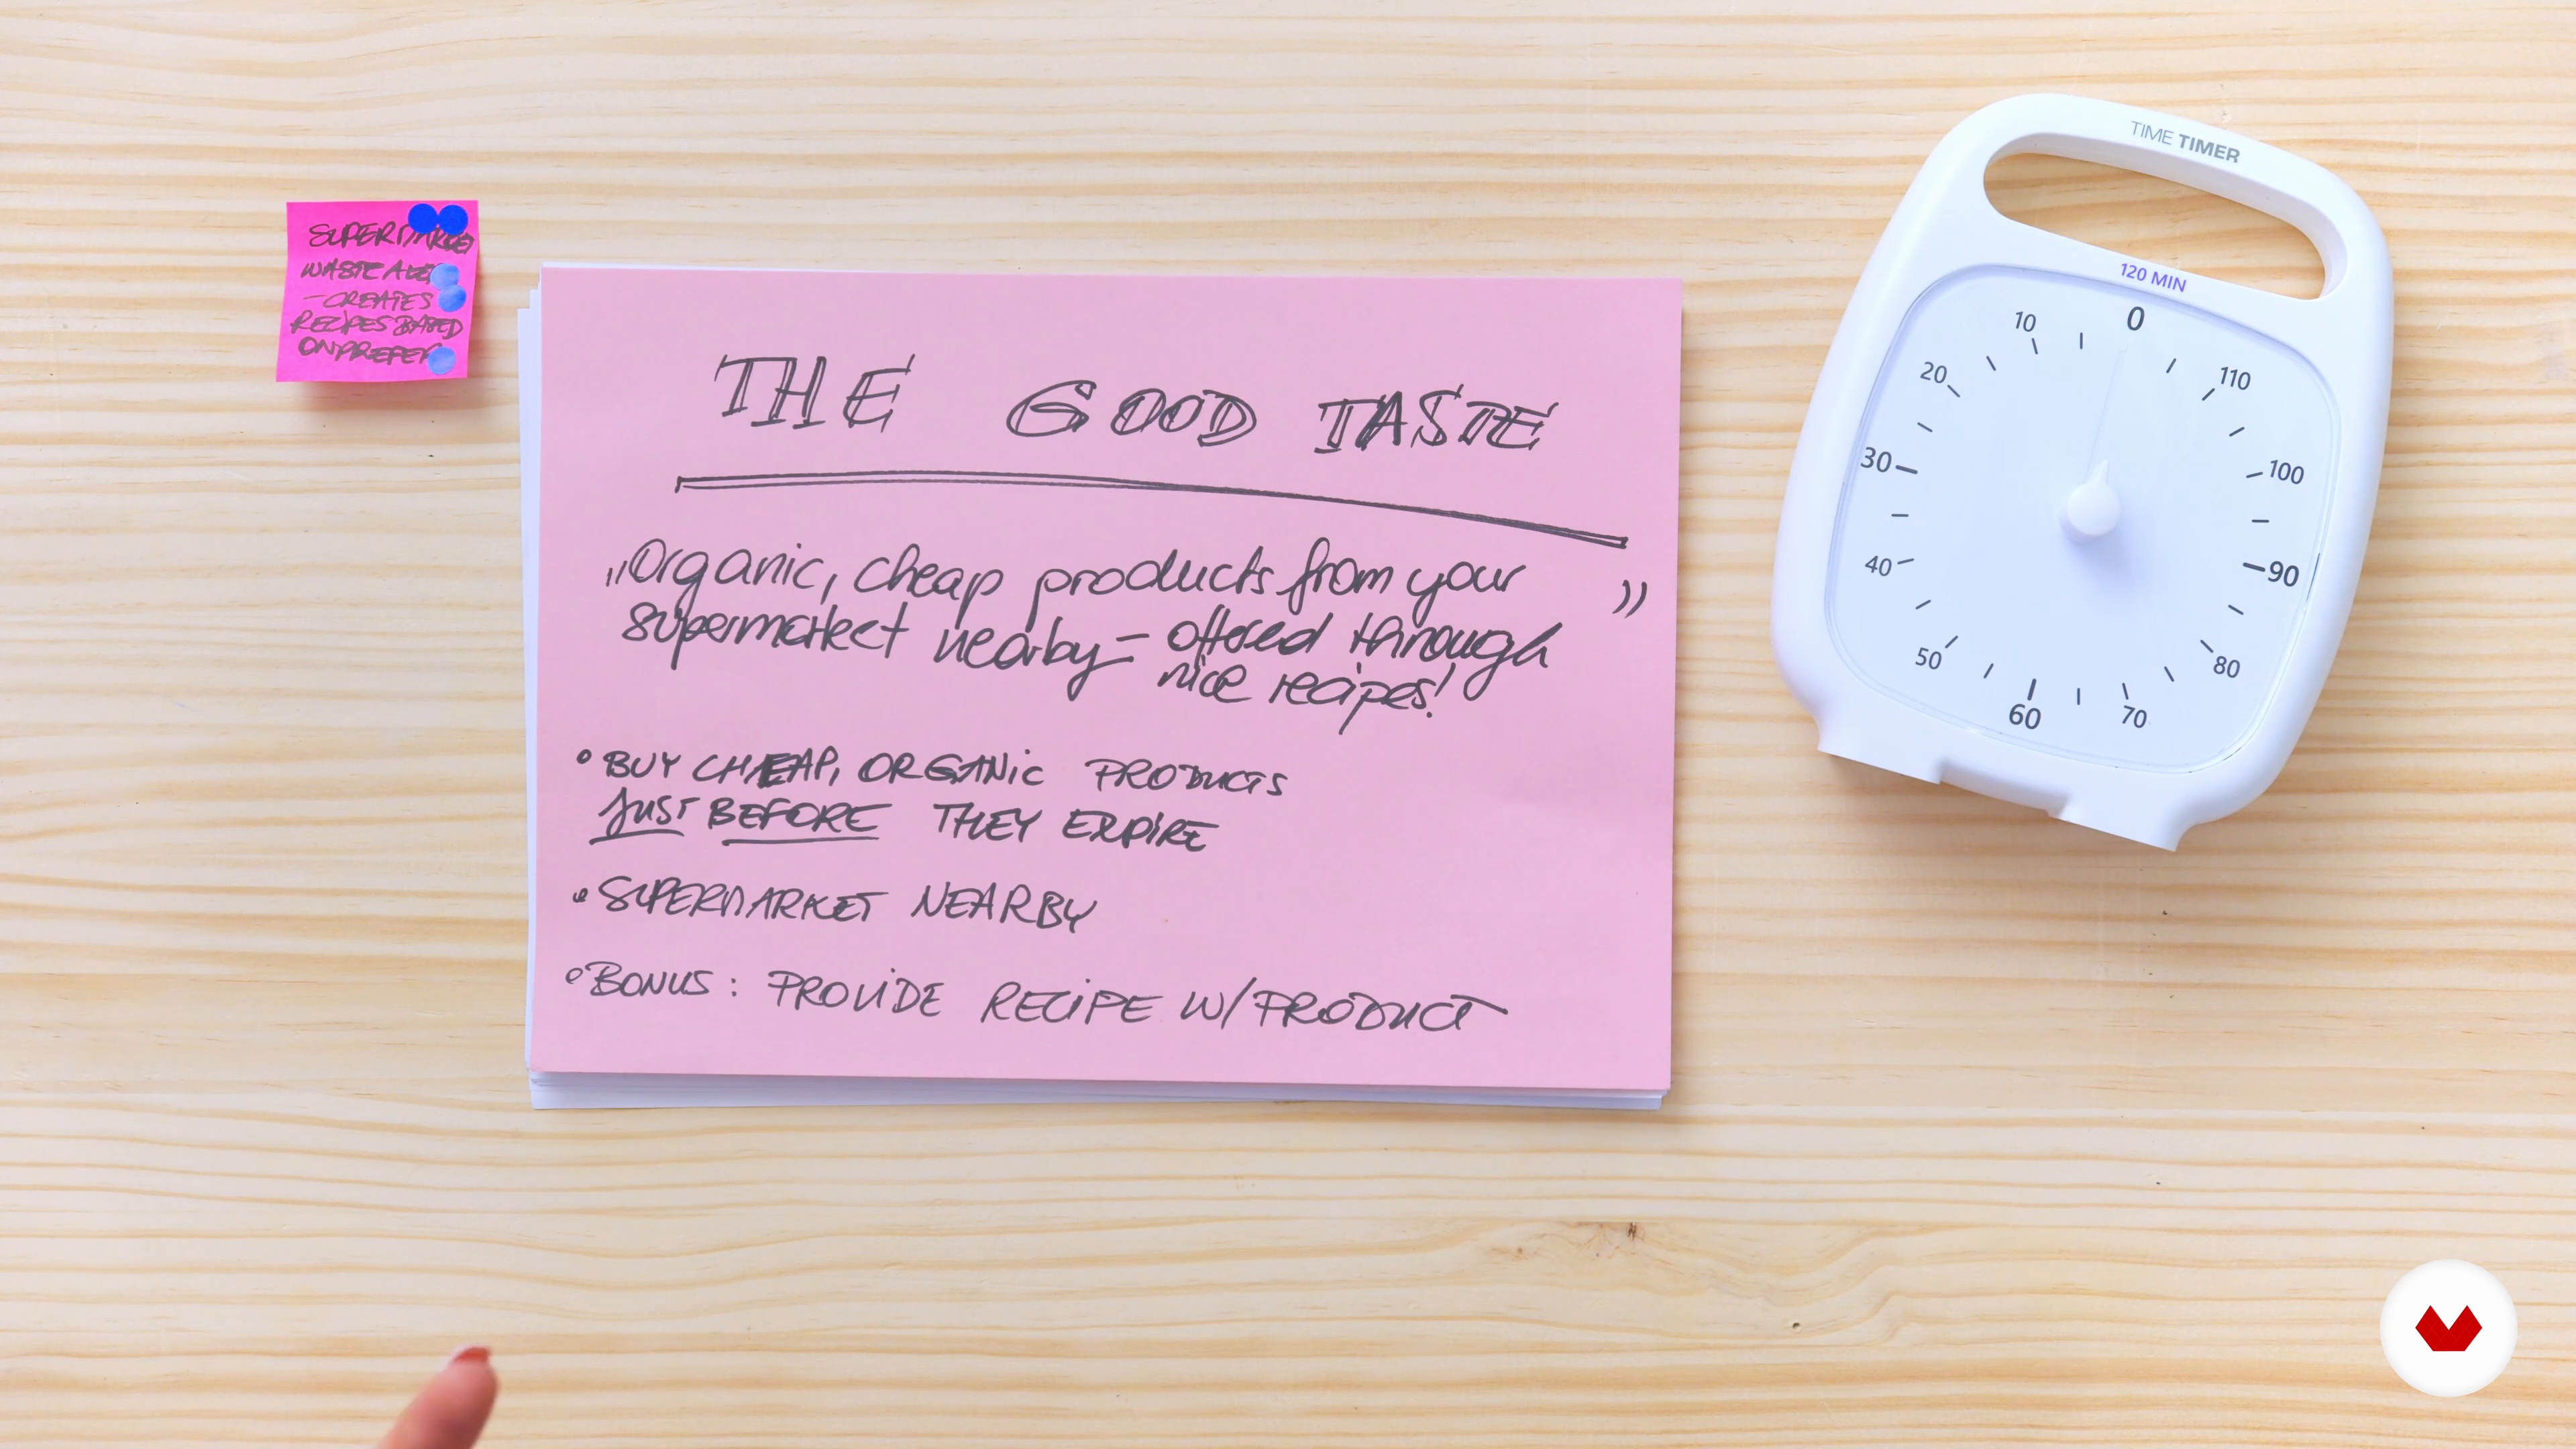 SUPERMARKET
WASTE
- CREATES
RECIPES BASED
ON PREFER
THE GOOD TASTE
„Organic, cheap products from your
supermarket nearby - offered through
nice recipes!”
• BUY CHEAP, ORGANIC PRODUCTS
JUST BEFORE THEY EXPIRE
• SUPERMARKET NEARBY
• BONUS: PROVIDE RECIPE W/ PRODUCT
TIME TIMER
120 MIN
0
10
20
30
40
50
60
70
80
90
100
110